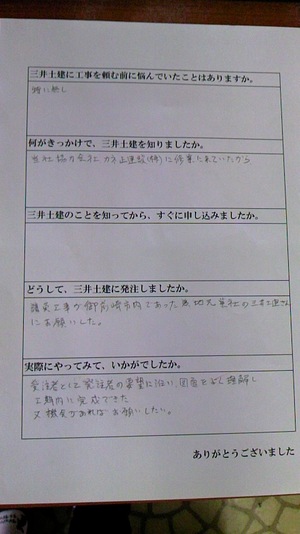 三井土建に工事を頼む前に悩んでいたことはありますか。
特に無し
何がきっかけで、三井土建を知りましたか。
当社協力会社 カネ正建設(株)に
三井土建のことを知ってから、すぐに申し込みましたか。
どうして、三井土建に発注しましたか。
工事が御前崎市内であった為地元業社の三井土建さん
にお願いした。
実際にやってみて、いかがでしたか。
発注者として発注者の要望に沿い 図面をよく理解し
工期内に完成できた
又機会があればお願いしたい。
ありがとうございました